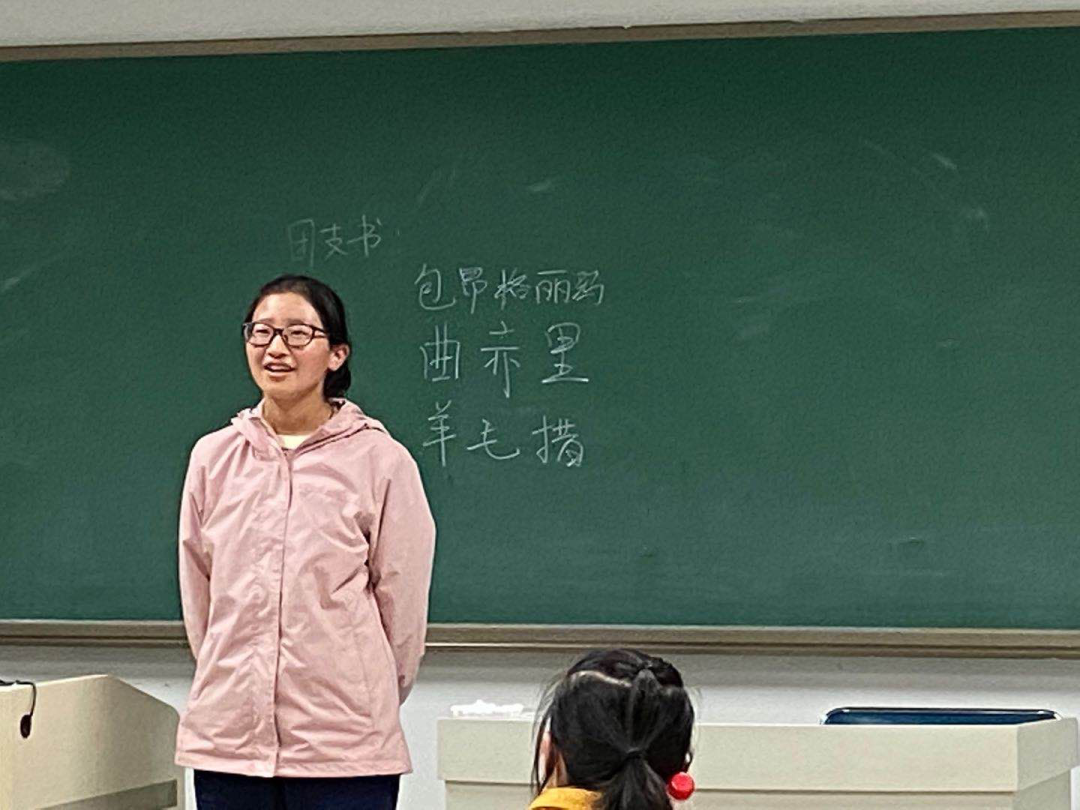 团支书
包昂格丽玛
曲亦里
羊毛措